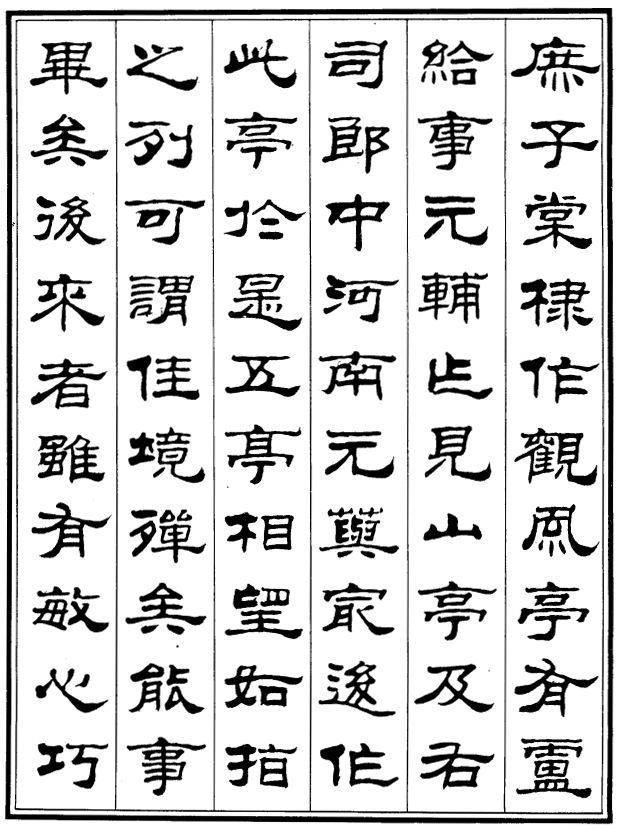 庶子棠棣作觀風亭有盧
給事元輔作見山亭及右
司郎中河南元藇最後作
此亭於是五亭相望如指
之列可謂佳境殫矣能事
畢矣後來者雖有敏心巧